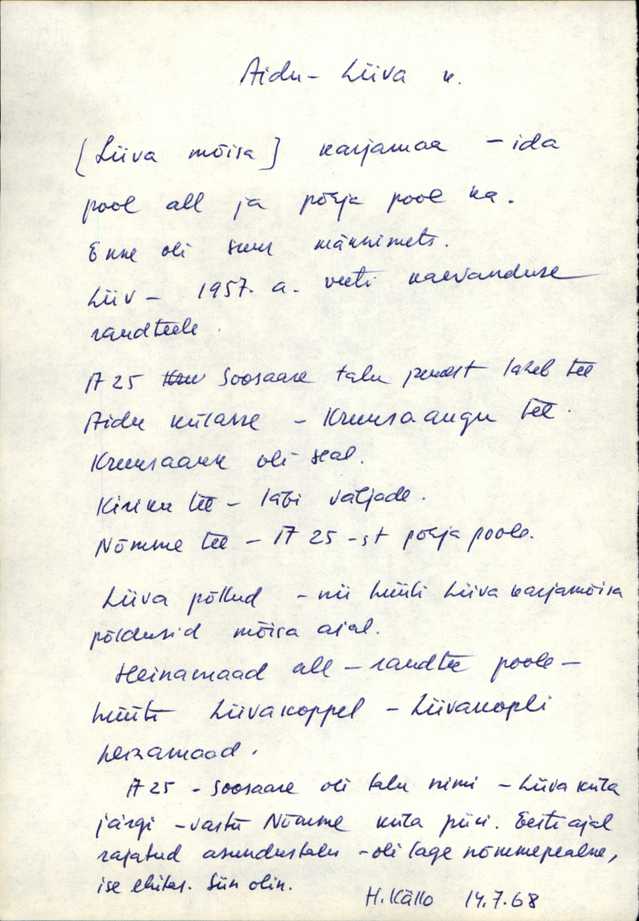 Aidu - Liiva k.
[Liiva mõisa] karjamaa - ida
pool all ja põhja pool ka.
Enne oli suur männimets.
Liiv - 1957. a. veeti kaevanduse
raudteele.
A 25 Soosaare talu juurest läheb tee
Aidu külasse - Kruusaaugu tee.
Kruusaauk oli seal.
Kiriku tee - läbi väljade.
Nõmme tee - A 25-st põhja poole.
Liiva põllud - nii hüüti Liiva karjamõisa
põldusid mõisa ajal.
Heinamaad all - raudtee poole -
hüüti Liivakoppel - Liivakopli
heinamaad.
A 25 - Soosaare oli talu nimi - Liiva küla
järgi - vastu Nõmme küla piiri. Eesti ajal
rajatud asundustalu - oli lage nõmmepealne,
ise ehitas. Siin olin.
H. Källo 14.7.68